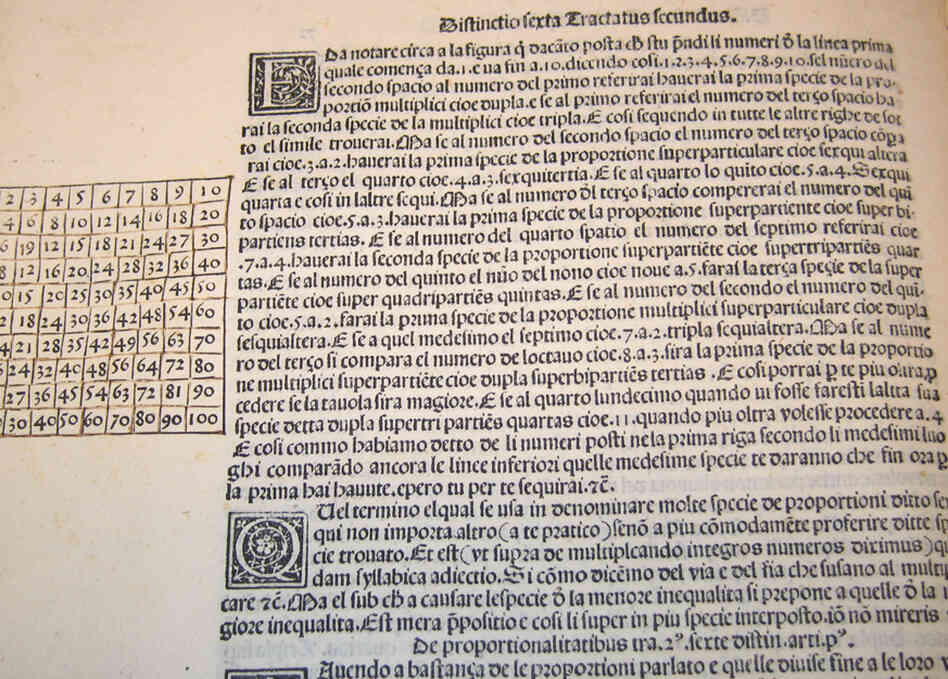 Distinctio sexta Tractatus secundus.
EDa notare circa a la figura q̃ dacãto posta cħ stu p̃ndi li numeri đ la linea prima
quale comença da.1.e ua fin a.10.dicendo cosi.1.2.3.4.5.6.7.8.9.10.sel nũero del
secondo spacio al numero del primo referirai hauerai la prima specie de la pro-
portiõ multiplici cioe dupla.e se al primo referirai el numero del terço spacio ha
rai la seconda specie de la multiplici cioe tripla.E cosi sequendo in tutte le altre righe de sot
to el simile trouerai.Ma se al numero del secondo spacio el numero del terço spacio cõpa
rai cioe.3.a.2.hauerai la prima specie de la proportione superparticulare cioe sexqui altera
E se al terço el quarto cioe.4.a.3.sexquitertia.E se al quarto lo quito cioe.5.a.4.Sexqui
quarta e cosi in laltre sequi.Ma se al numero đl terço spacio compererai el numero del qui
to spacio cioe.5.a.3.hauerai la prima specie de la proportione superpartiente cioe super bi-
partiens tertias. E se al numero del quarto spatio el numero del septimo referirai cioe
.7.a.4.hauerai la seconda specie de la proportione superpartiẽte cioe supertripartiẽs quar
tas.E se al numero del quinto el nũo del nono cioe noue a.5.farai la terça speçie de la super
partiẽte cioe super quadripartiẽs quintas.E se al numero del secondo el numero del qui-
to cioe.5.a.2.farai la prima specie de la proportione multiplici superparticulare cioe dupla
sesquialtera.E se a quel medesimo el septimo cioe.7.a.2.tripla sequialtera.Ma se al nume
ro del terço si compara el numero de loctauo cioe.8.a.3.sira la prima specie de la proportio
ne multiplici superpartiẽte cioe dupla superbipartiẽs tertias .E cosi porrai p te piu oltra p
cedere se la tauola sira magiore.E se al quarto lundecimo quando ui fosse faresti laltra sua
specie detta dupla supertri partiẽs quartas cioe.11.quando piu oltra volesse procedere a.4
E cosi commo habiamo detto de li numeri posti ne la prima riga secondo li medesimi luo
ghi comparãdo ancora le linee inferiori quelle medesime specie te daranno che fin ora p
la prima hai hauute.epero tu per te sequirai.⁊c̃.
QUel termino elqual se usa in denominare molte specie de proportioni ditto se
qui non importa altro(a te pratico)senõ a piu cõmodamẽte proferire ditte s
cie trouato.Et est(vt supra de multiplcando integros numeros diximus)qu
dam syllabica adiectio.Si cõmo dicẽmo del via e del fia che susano al multip
care ⁊c̃.Ma el sub cħ a causare lespecie đ la menore inequalita si prepone a quelle đ la
giore inequalita.Est mera p̃positio e cosi li super in piu specie interposto.iõ nõ mireris
De proportionalitatibus tra.2⁹.sexte distin.arti.p⁹.
Auendo a bastança de le proportioni parlato e quelle diuise fine a le loro
2 3 4 5 6 7 8 9 10
4 6 8 10 12 14 16 18 20
6 19 12 15 18 21 24 27 30
8 12 16 20 24 28 32 36 40
0 15 20 25 30 35 40 45 50
2 18 24 30 36 42 48 54 60
4 21 28 35 42 49 56 63 70
6 24 32 40 48 56 64 72 80
27 36 45 54 63 72 81 90
30 40 50 60 70 80 90 100